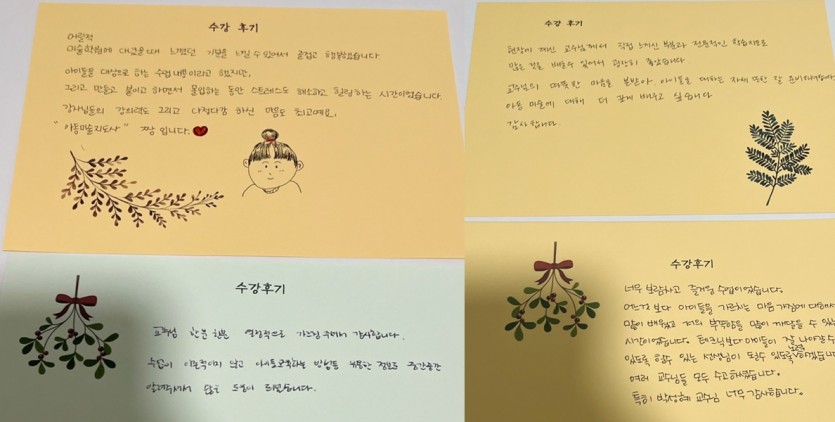 수강 후기
어릴적
미술학원에 다녔을때 느꼈던 기분을 느낄 수 있어서 즐겁고 행복했습니다.
아이들을 대상으로 하는 수업 내용이라고 했지만,
그리고 만들고 붙이고 하면서 몰입하는 동안 스트레스도 해소되고 힐링하는 시간이었습니다.
강사님들의 강의력도 그리고 다정다감 하신 마음도 최고예요.
"아동미술지도사" 짱 입니다.
수강 후기
현장에 계신 교수님께서 직접 느끼신 부분과 전문적인 학습지도로
많은 것을 배울수 있어서 굉장히 좋았습니다
교수님의 따뜻한 마음을 본받아 아이들을 대하는 자세 또한 잘
아동 미술에 대해 더 깊게 배우고 싶습니다
감사합니다
수강후기
교수님 한분 한분 열정적으로 가르쳐주셔서 감사합니다.
수업이 이론적이지 않고 방법등 정보도 중간중간
알려주셔서 많은 도움이 되었습니다.
수강후기
너무 보람차고 즐거운 수업이었습니다.
어느것 보다 아이들을 가르치는 마음가짐에 대해서
많이 배웠고 저의 부족함을 많이 깨달을 수 있는
시간이었습니다. 테크닉보다 아이들이 잘 나아갈 수
있도록 하는 선생님이 될수 있도록 하겠습니다
여러 교수님들 모두 수고하셨습니다.
특히 박정혜 교수님 너무 감사합니다.